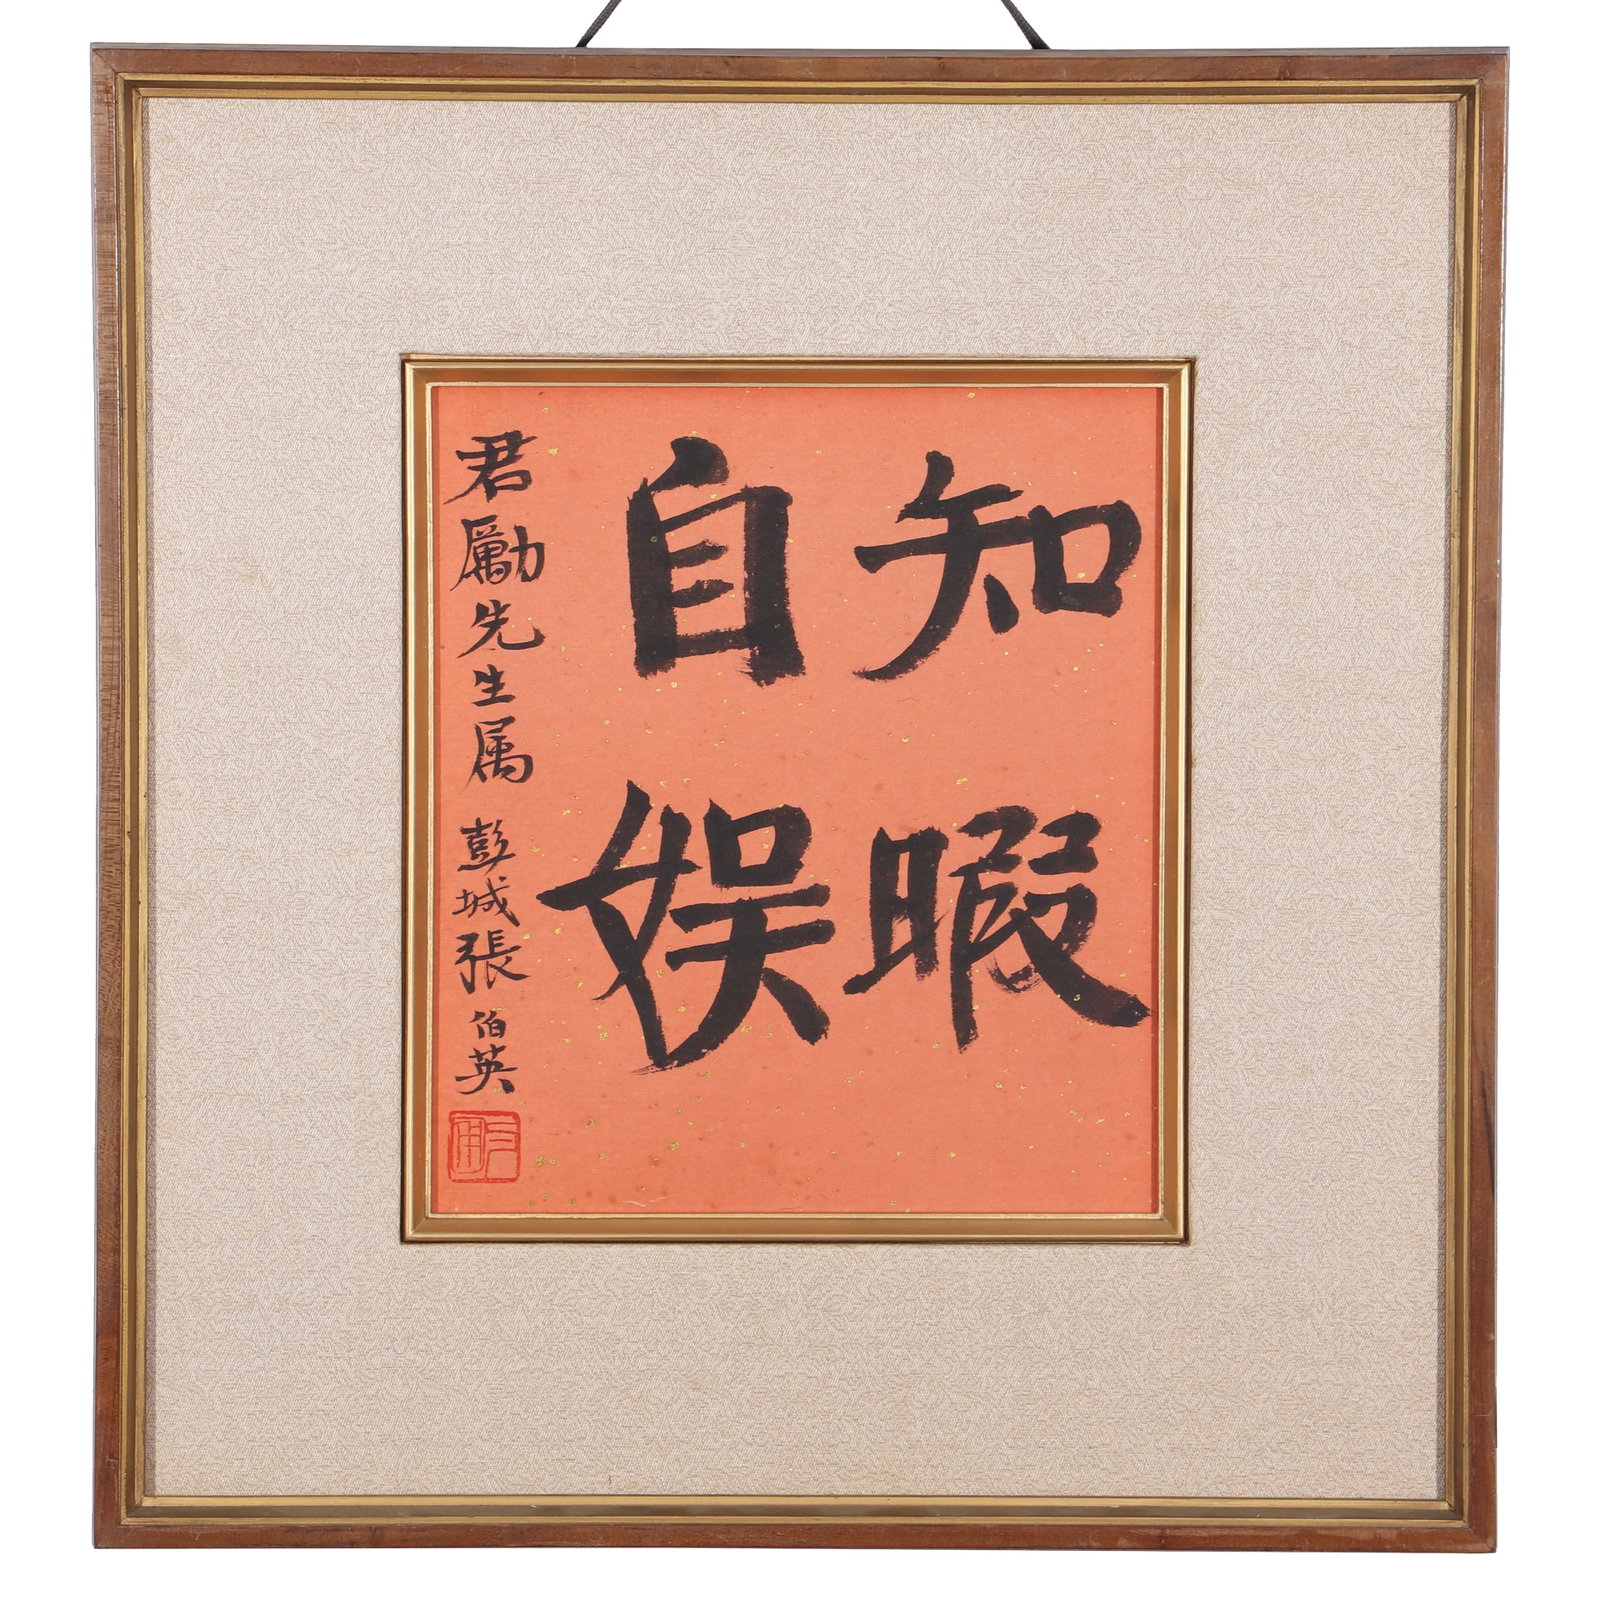 知暇
自娱
君勵先生属 彭城張伯英